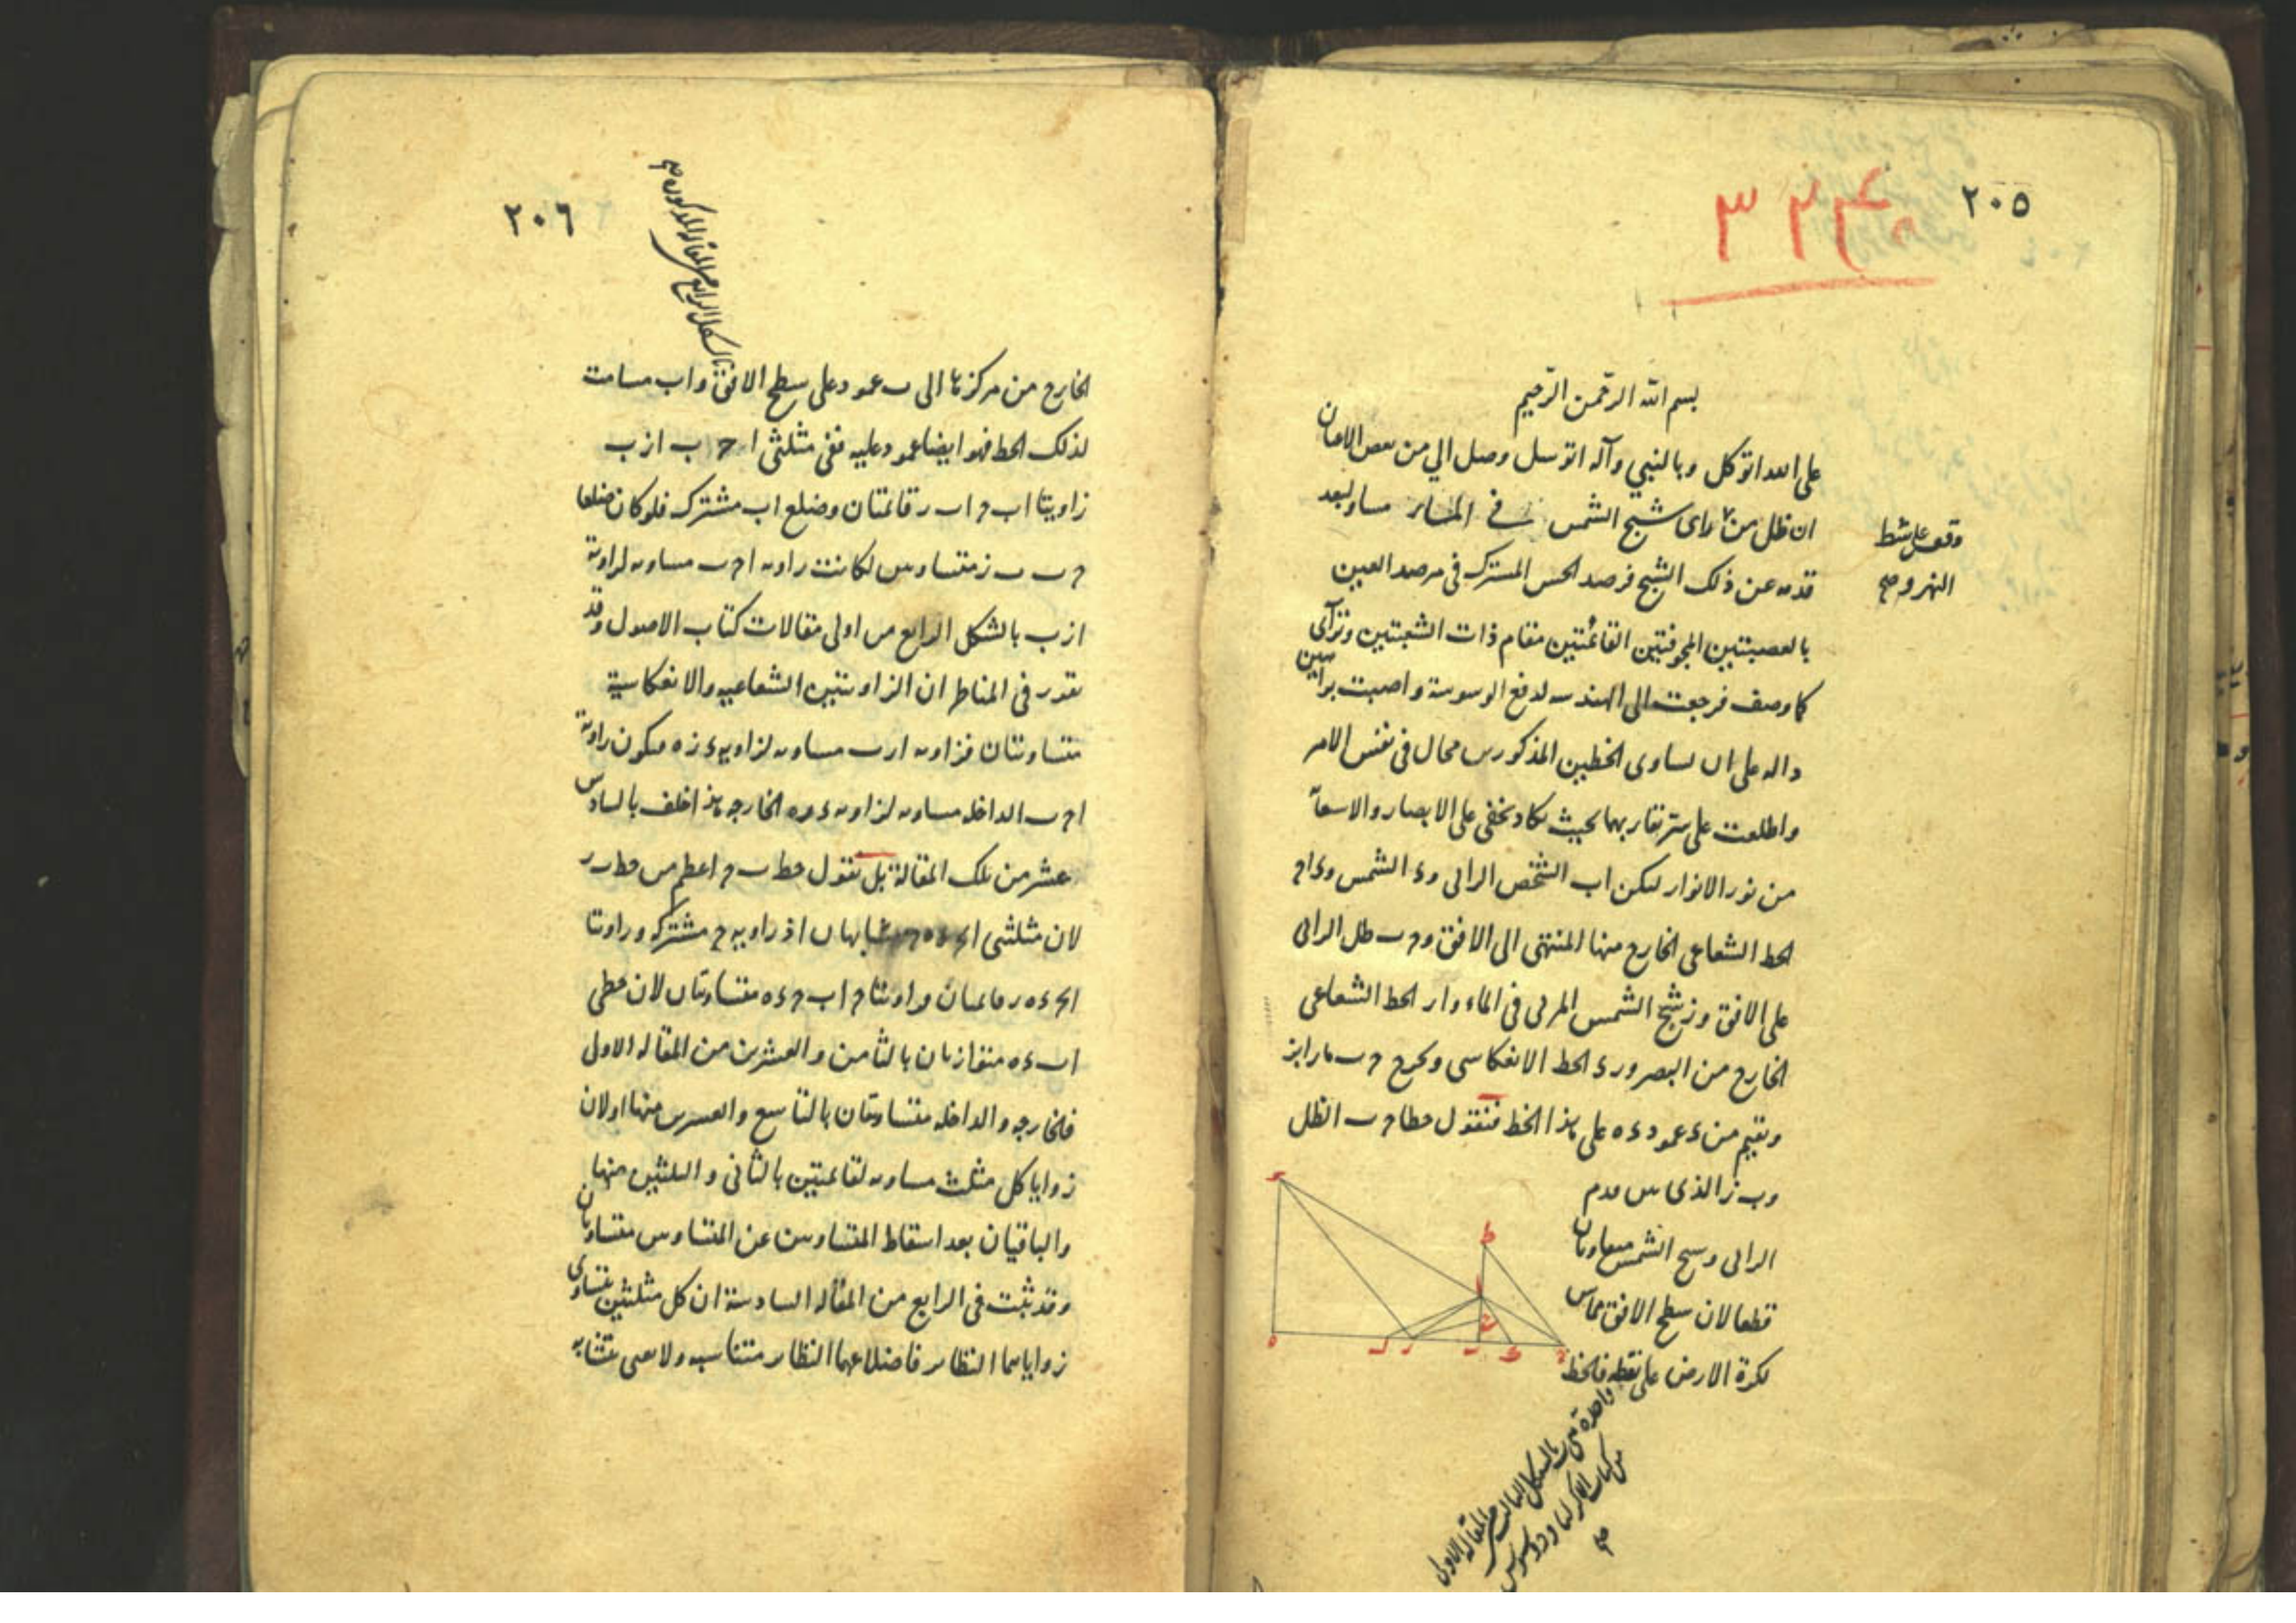 ٢٠٥
٣٢٣
بسم الله الرحمن الرحيم
على الله اتوكل وبالنبي وآله اتوسل وصل الي من بعض الاعيان
ان ظل من رأى شبح الشمس في الماء مساو لبعد
وقف على شط
النهر و صح
قدمه عن ذلك الشبح فرصد الحس المشترك في مرصد العين
بالعصبتين المجوفتين القائمتين مقام ذات الشعبتين وتراآى
كما وصف فرجعت الى الهندسه لدفع الوسوسة واصبت براهين
داله على ان تساوى الخطين المذكورين محال في نفس الامر
واطلعت على سر تقاربهما بحيث يكاد يخفى على الابصار والاستعانة
من نور الانوار ليكن اب الشخص الرائى وء الشمس وء اح
الخط الشعاعى الخارج منها المنتهى الى الافق وح ب ظل الرائى
على الافق وز شبح الشمس المرئى في الماء وار الخط الشعاعى
الخارج من البصر ورء الخط الانعكاسى ونخرج ح ب مارا بز
ونقيم من ء عمود ءه على هذا الخط فنقول خطا ح ب الظل
وب ز الذى بين قدم
الرائى وشبح الشمس متفاوتان
قطعا لان سطح الافق مماس
لكرة الارض على نقطه فالخط
واحدة هى ب بالشكل الثالث من المقالة الاولى
من كتاب الاكر لثاودوسيوس
صح
٢٠٦
بالشكل الرابع من المقالة المذكورة صح
الخارج من مركزها الى ب عمود على سطح الافق واب مسامت
لذلك الخط فهو ايضا عمود عليه ففى مثلثى ا ح ب ا ز ب
زاويتا اب ح اب ر قائمتان وضلع اب مشترك فلو كان ضلعا
ح ب ب ز متساويين لكانت زاويه اح ب مساويه لزاوية
ازب بالشكل الرابع من اولى مقالات كتاب الاصول وقد
تقرر في المناظر ان الزاويتين الشعاعيه والانعكاسية
متساويتان فزاويه ارب مساويه لزاويه ء زه فيكون زاوية
اح ب الداخله مساويه لزاويه ء ره الخارجه هذا خلف بالسادس
عشر من تلك المقالة بل نقول خط ب ح اعظم من خط ب ر
لان مثلثى متشابهان اذ زاويه ح مشتركه وزاويتا
قائمتان وزاويتا ح اب ح ءه متساويتان لان خطى
اب ءه متوازيان بالثامن والعشرين من المقاله الاولى
فالخارجه والداخله متساويتان بالتاسع والعشرين منها او لان
زوايا كل مثلث مساويه لقائمتين بالثانى والثلثين منها
والباقيان بعد اسقاط المتساويين عن المتساويين متساويان
وقد ثبت في الرابع من المقاله السادسة ان كل مثلثين يتساوى
زواياهما النظائر فاضلاعهما النظائر متناسبه ولا نعنى بتشابه